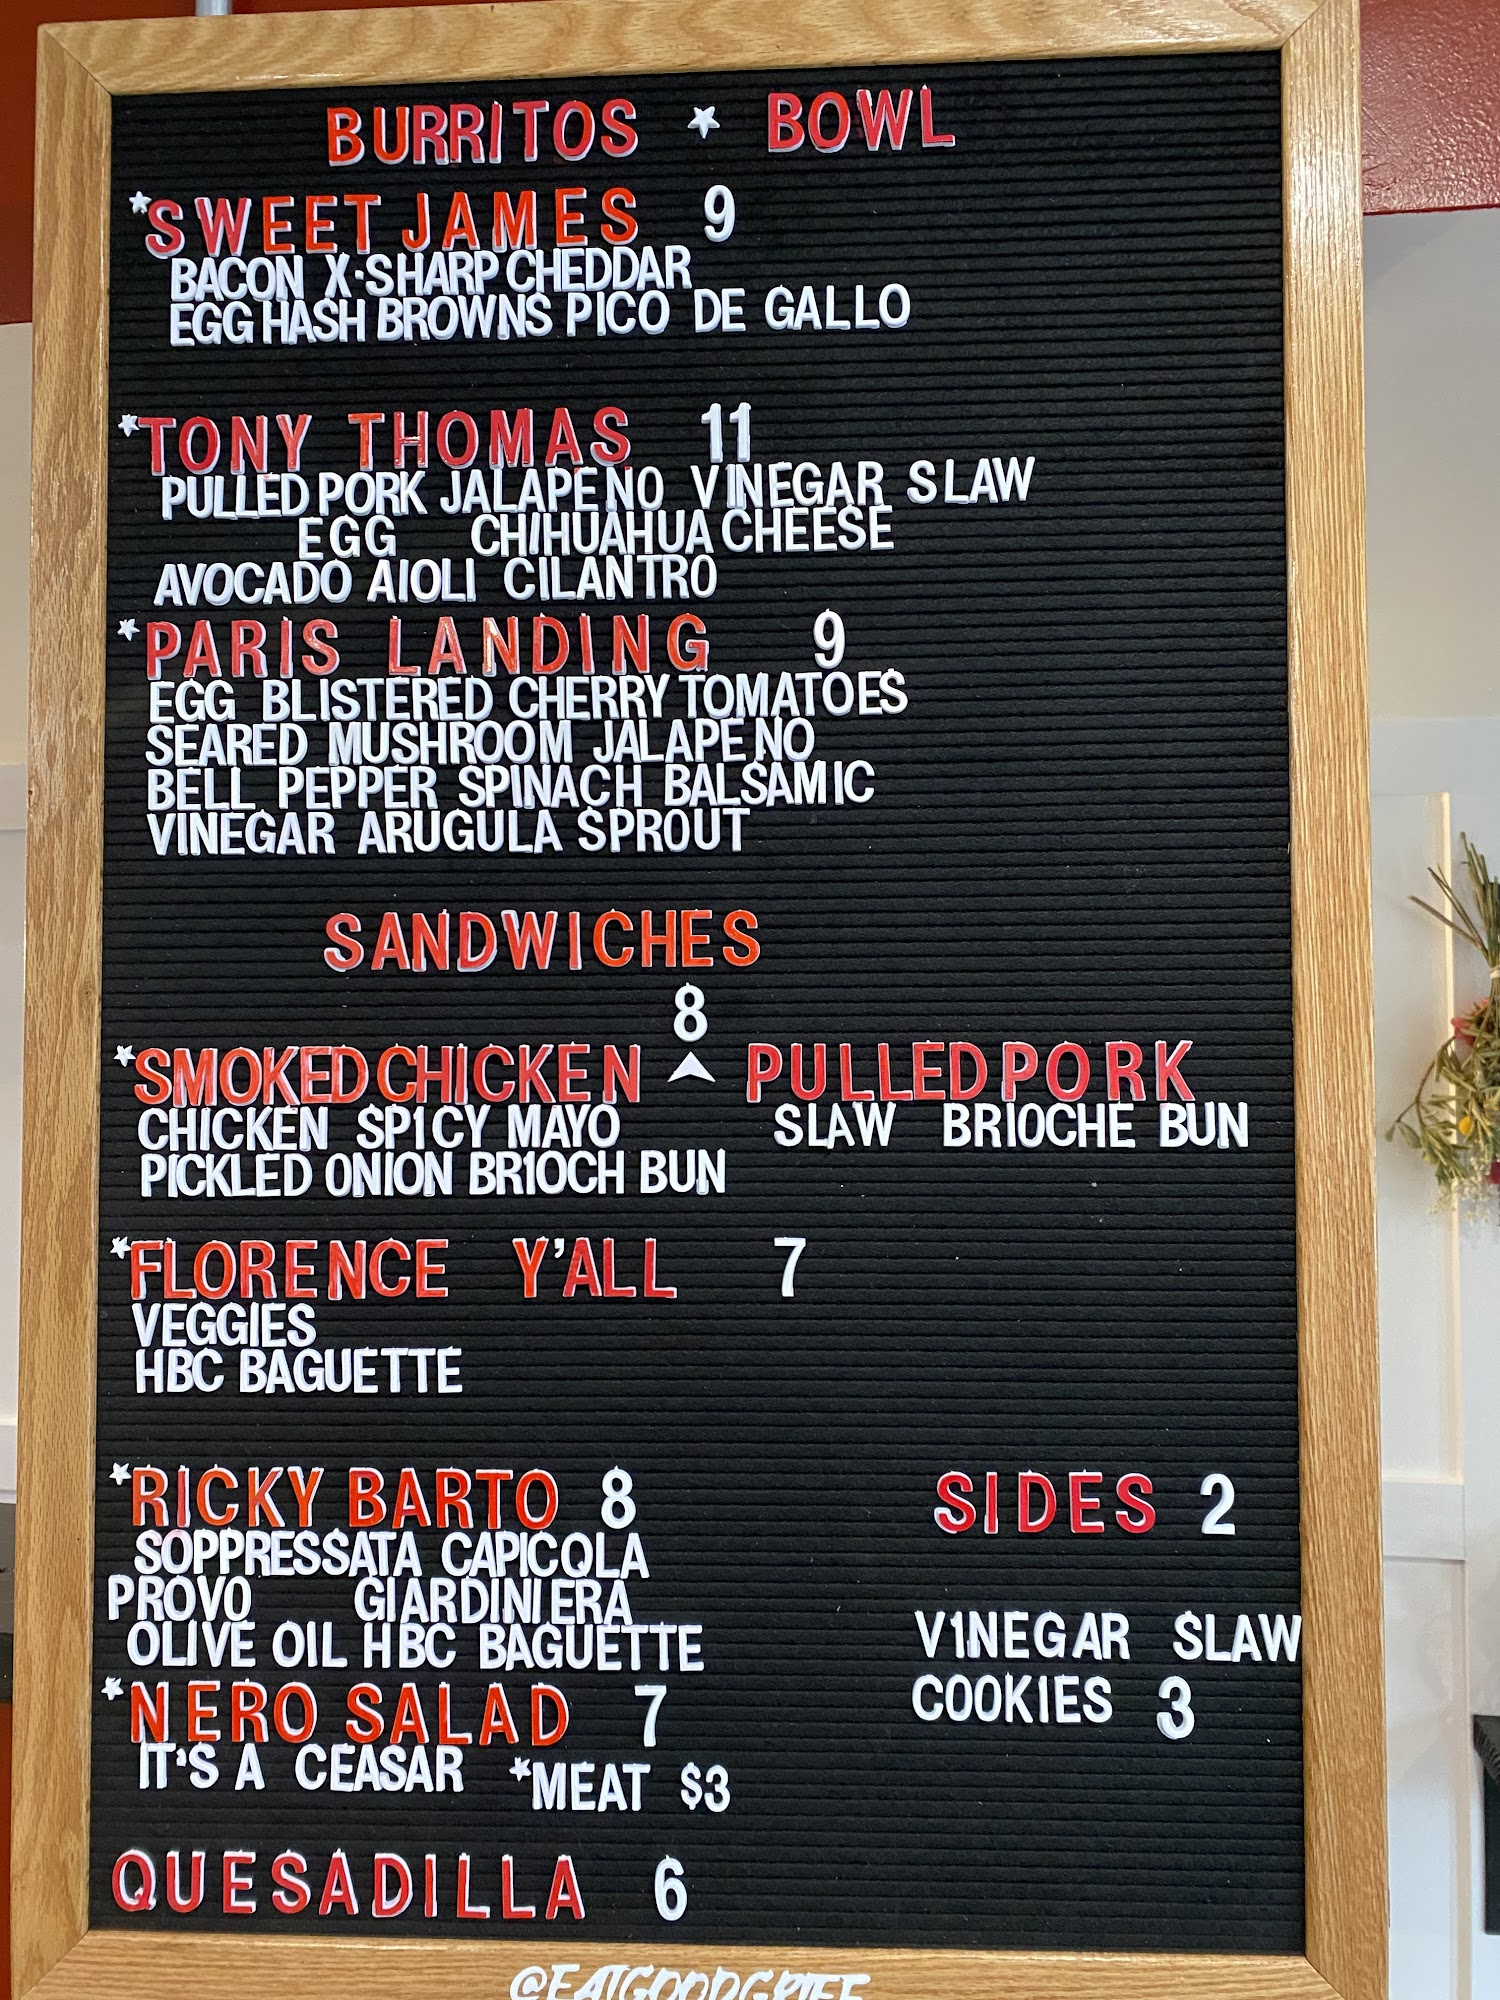 BURRITOS * BOWL
*SWEET JAMES 9
BACON X-SHARP CHEDDAR
EGG HASH BROWNS PICO DE GALLO
*TONY THOMAS 11
PULLED PORK JALAPENO VINEGAR SLAW
EGG CHIHUAHUA CHEESE
AVOCADO AIOLI CILANTRO
*PARIS LANDING 9
EGG BLISTERED CHERRY TOMATOES
SEARED MUSHROOM JALAPENO
BELL PEPPER SPINACH BALSAMIC
VINEGAR ARUGULA SPROUT
SANDWICHES
8
*SMOKED CHICKEN ^ PULLED PORK
CHICKEN SP1CY MAYO SLAW BRIOCHE BUN
PICKLED ONION BR1OCH BUN
*FLORENCE Y'ALL 7
VEGGIES
HBC BAGUETTE
*RICKY BARTO 8
SOPPRESSATA CAPICOLA
PROVO GIARDINIERA
OLIVE OIL HBC BAGUETTE
*NERO SALAD 7
IT'S A CEASAR *MEAT $3
QUESADILLA 6
SIDES 2
V1NEGAR SLAW
COOKIES 3
@EATGOODGRIEF